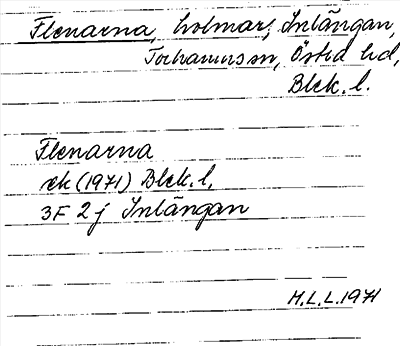 Flenarna, holmar, Inlängan,
Torhamns sn, Östra hd,
Blek. l.
Flenarna
ek (1971) Blek. l,
3F 2j Inlängan
M.L.L. 1971